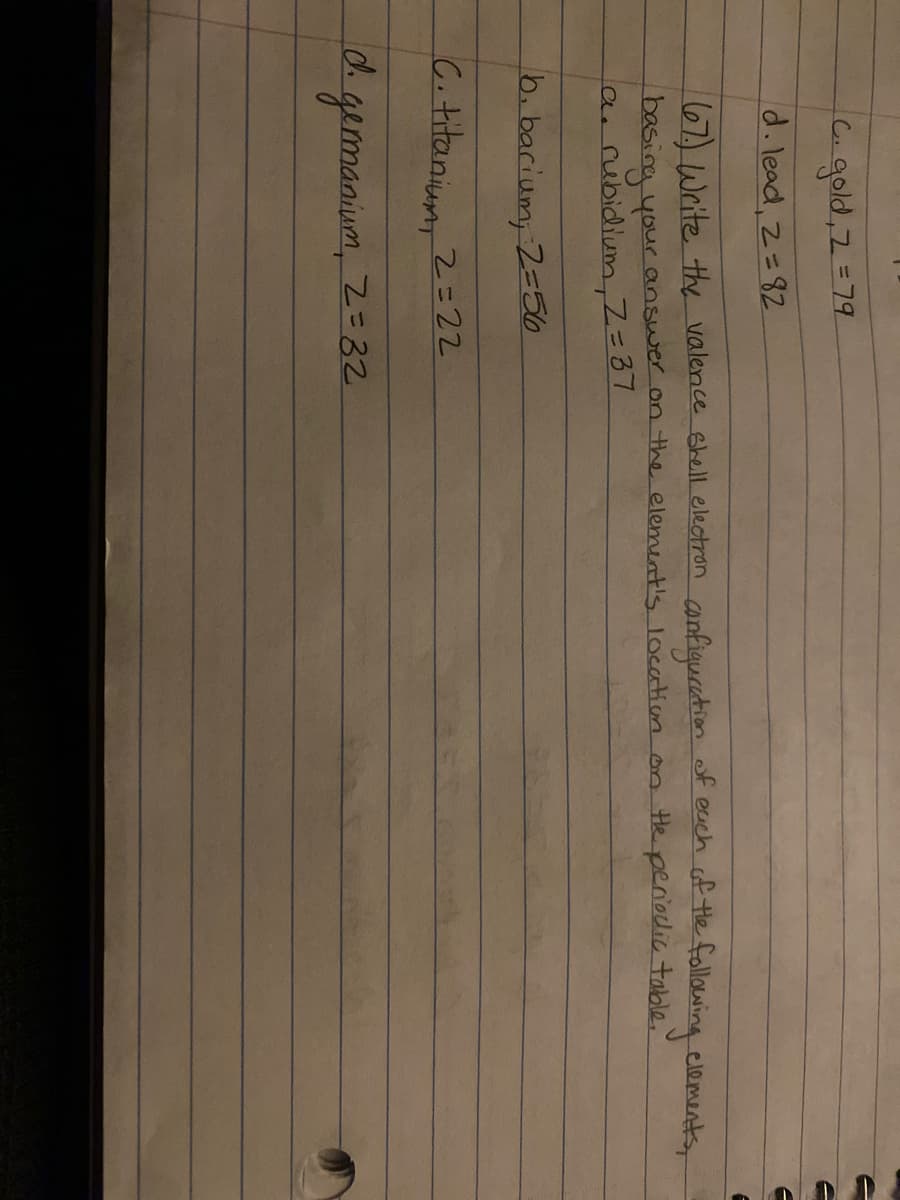 c. gold, Z = 79
d. lead, Z = 82
67.) Write the valence shell electron configuration of each of the following elements,
basing your answer on the element's location on the periodic table.
a. rubidium, Z = 37
b. barium, Z=56
C. titanium, Z = 22
d. germanium, Z = 32